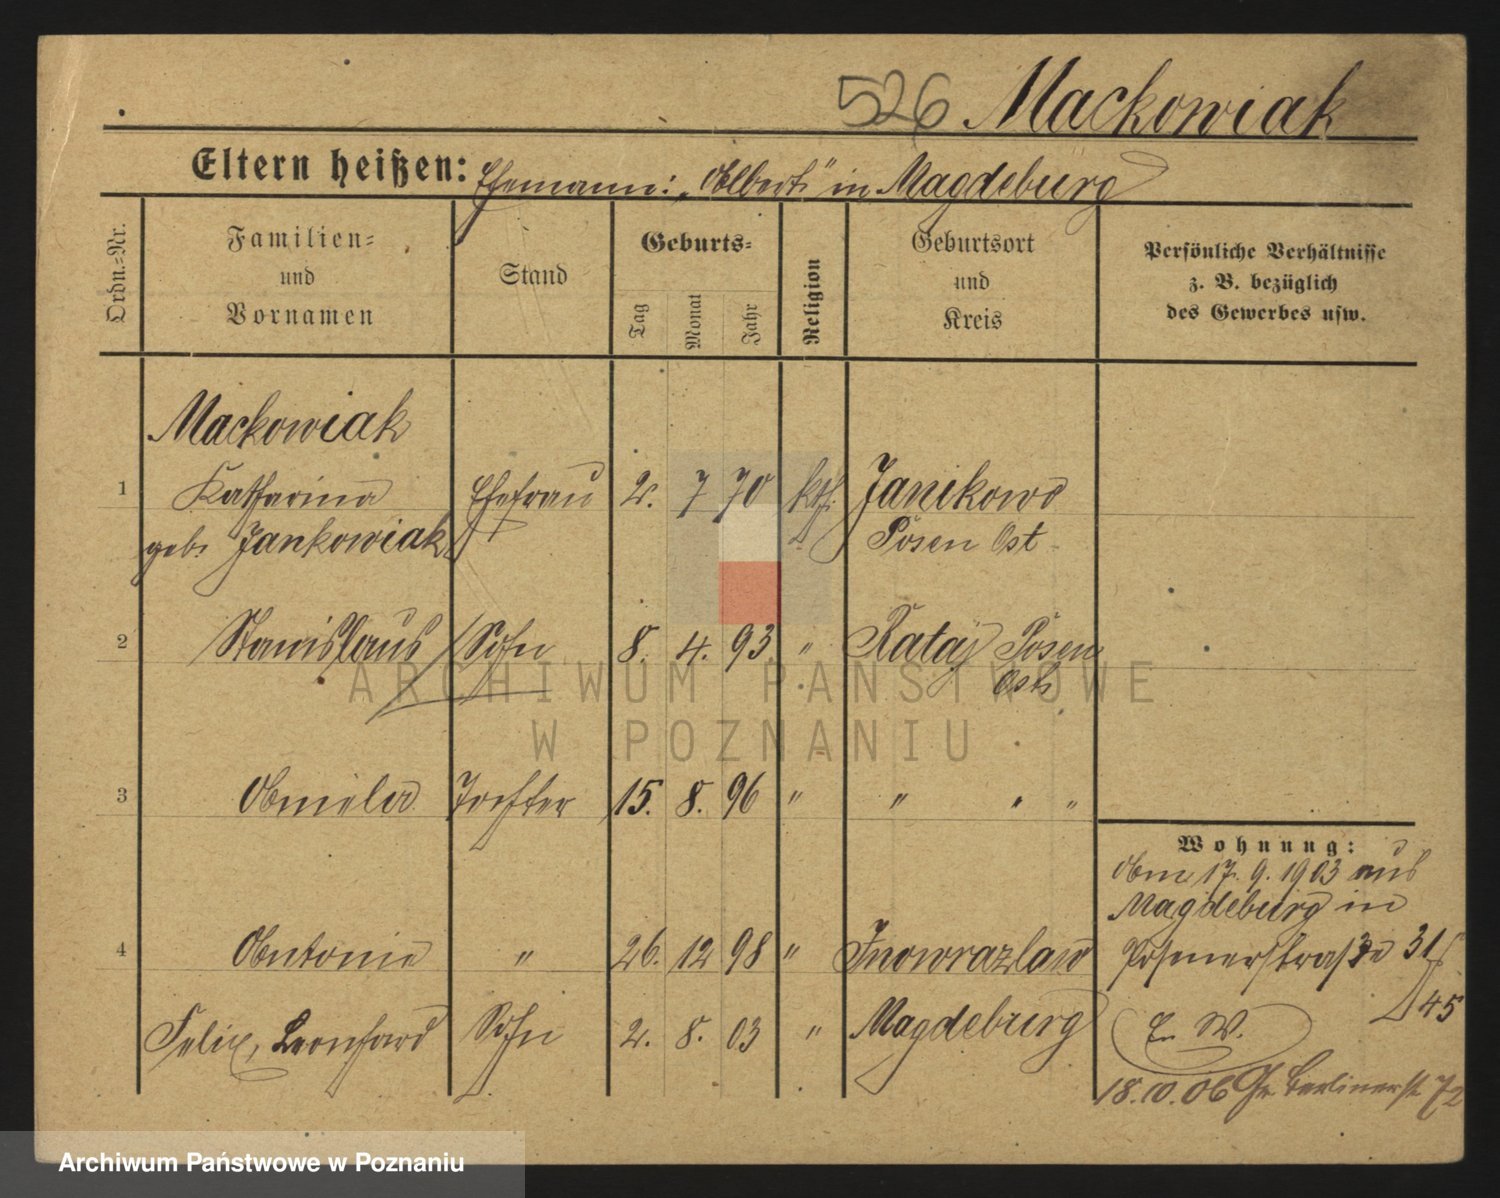 526 Mackowiak
Eltern heißen: Ehemann: „Albert" in Magdeburg
Ordn.=Nr.
Familien=
und
Vornamen
Stand
Geburts=
Tag
Monat
Jahr
Religion
Geburtsort
und
Kreis
Persönliche Verhältnisse
z. B. bezüglich
des Gewerbes usw.
Mackowiak
1 Katharina Ehefrau 2. 7 70 kth. Janikowo
geb. Jankowiak Posen Ost
2 Stanislaus Sohn 8. 4. 93 " Rataj Posen
Ost
3 Aniela Tochter 15. 8. 96 " " " "
4 Antonie " 26. 12 98 " Inowrazlaw
Felix, Leonhard Sohn 2. 8. 03 " Magdeburg
Wohnung:
Am 17. 9. 1903 aus
Magdeburg in
Posenerstraße 31
45
E. W.
18.10.06 Gr. Berlinerst 72
ARCHIWUM PAŃSTWOWE
W POZNANIU
Archiwum Państwowe w Poznaniu